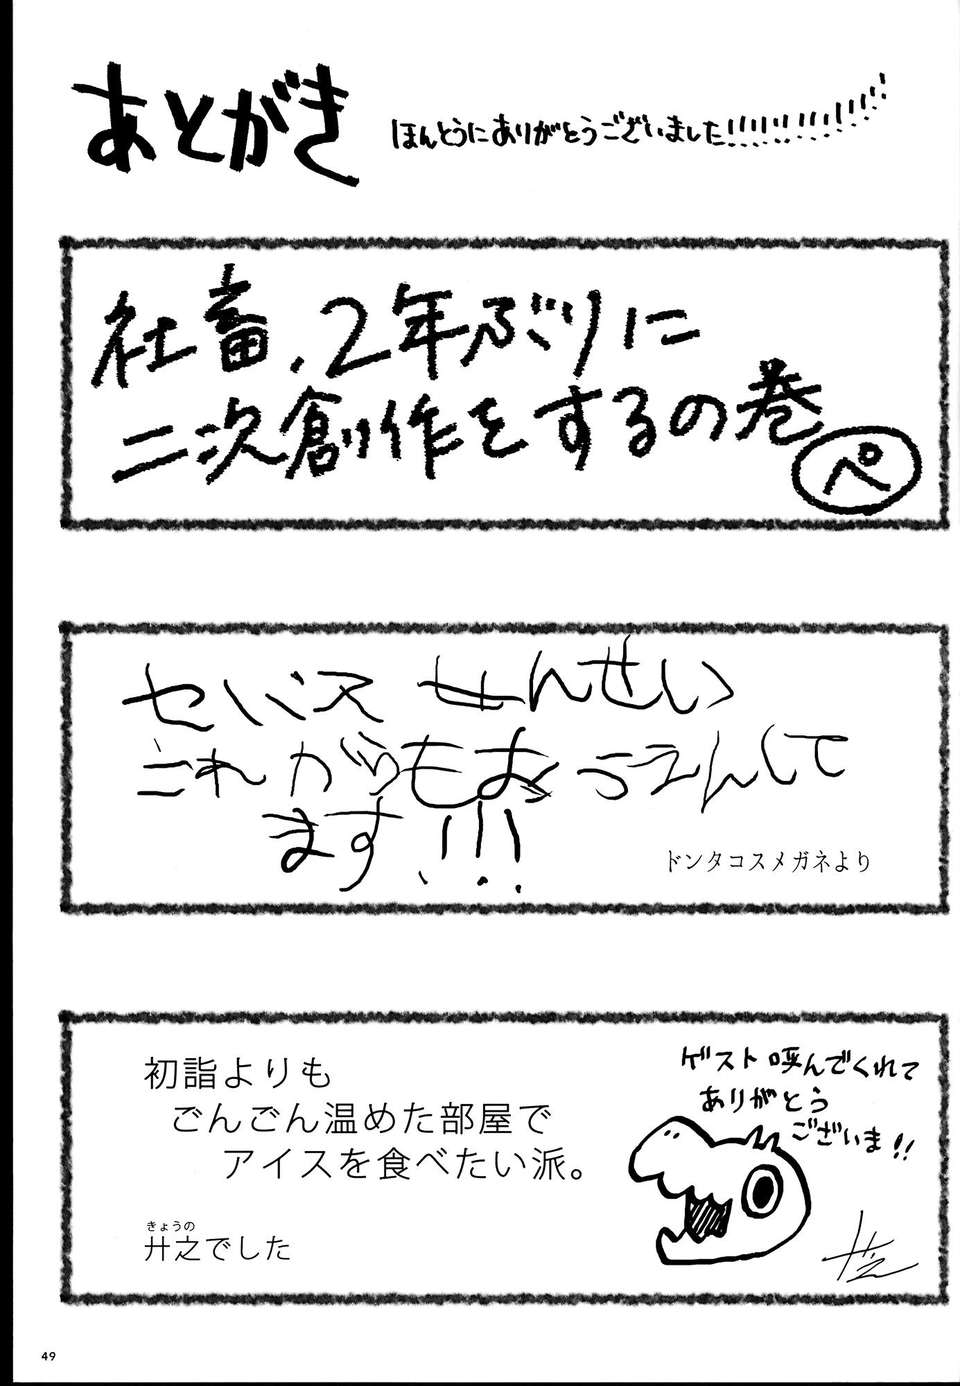 あとがき
ほんとうにありがとうございました!!!!!!!!!!!!!!
社畜、2年ぶりに
二次創作をするの巻
ぺ
セバス せんせい
これからもおうえんして
ます!!!
ドンタコスメガネより
初詣よりも
ごんごん温めた部屋で
アイスを食べたい派。
きょうの
廾之でした
ゲスト呼んでくれて
ありがとう
ございま!!
廾之
49